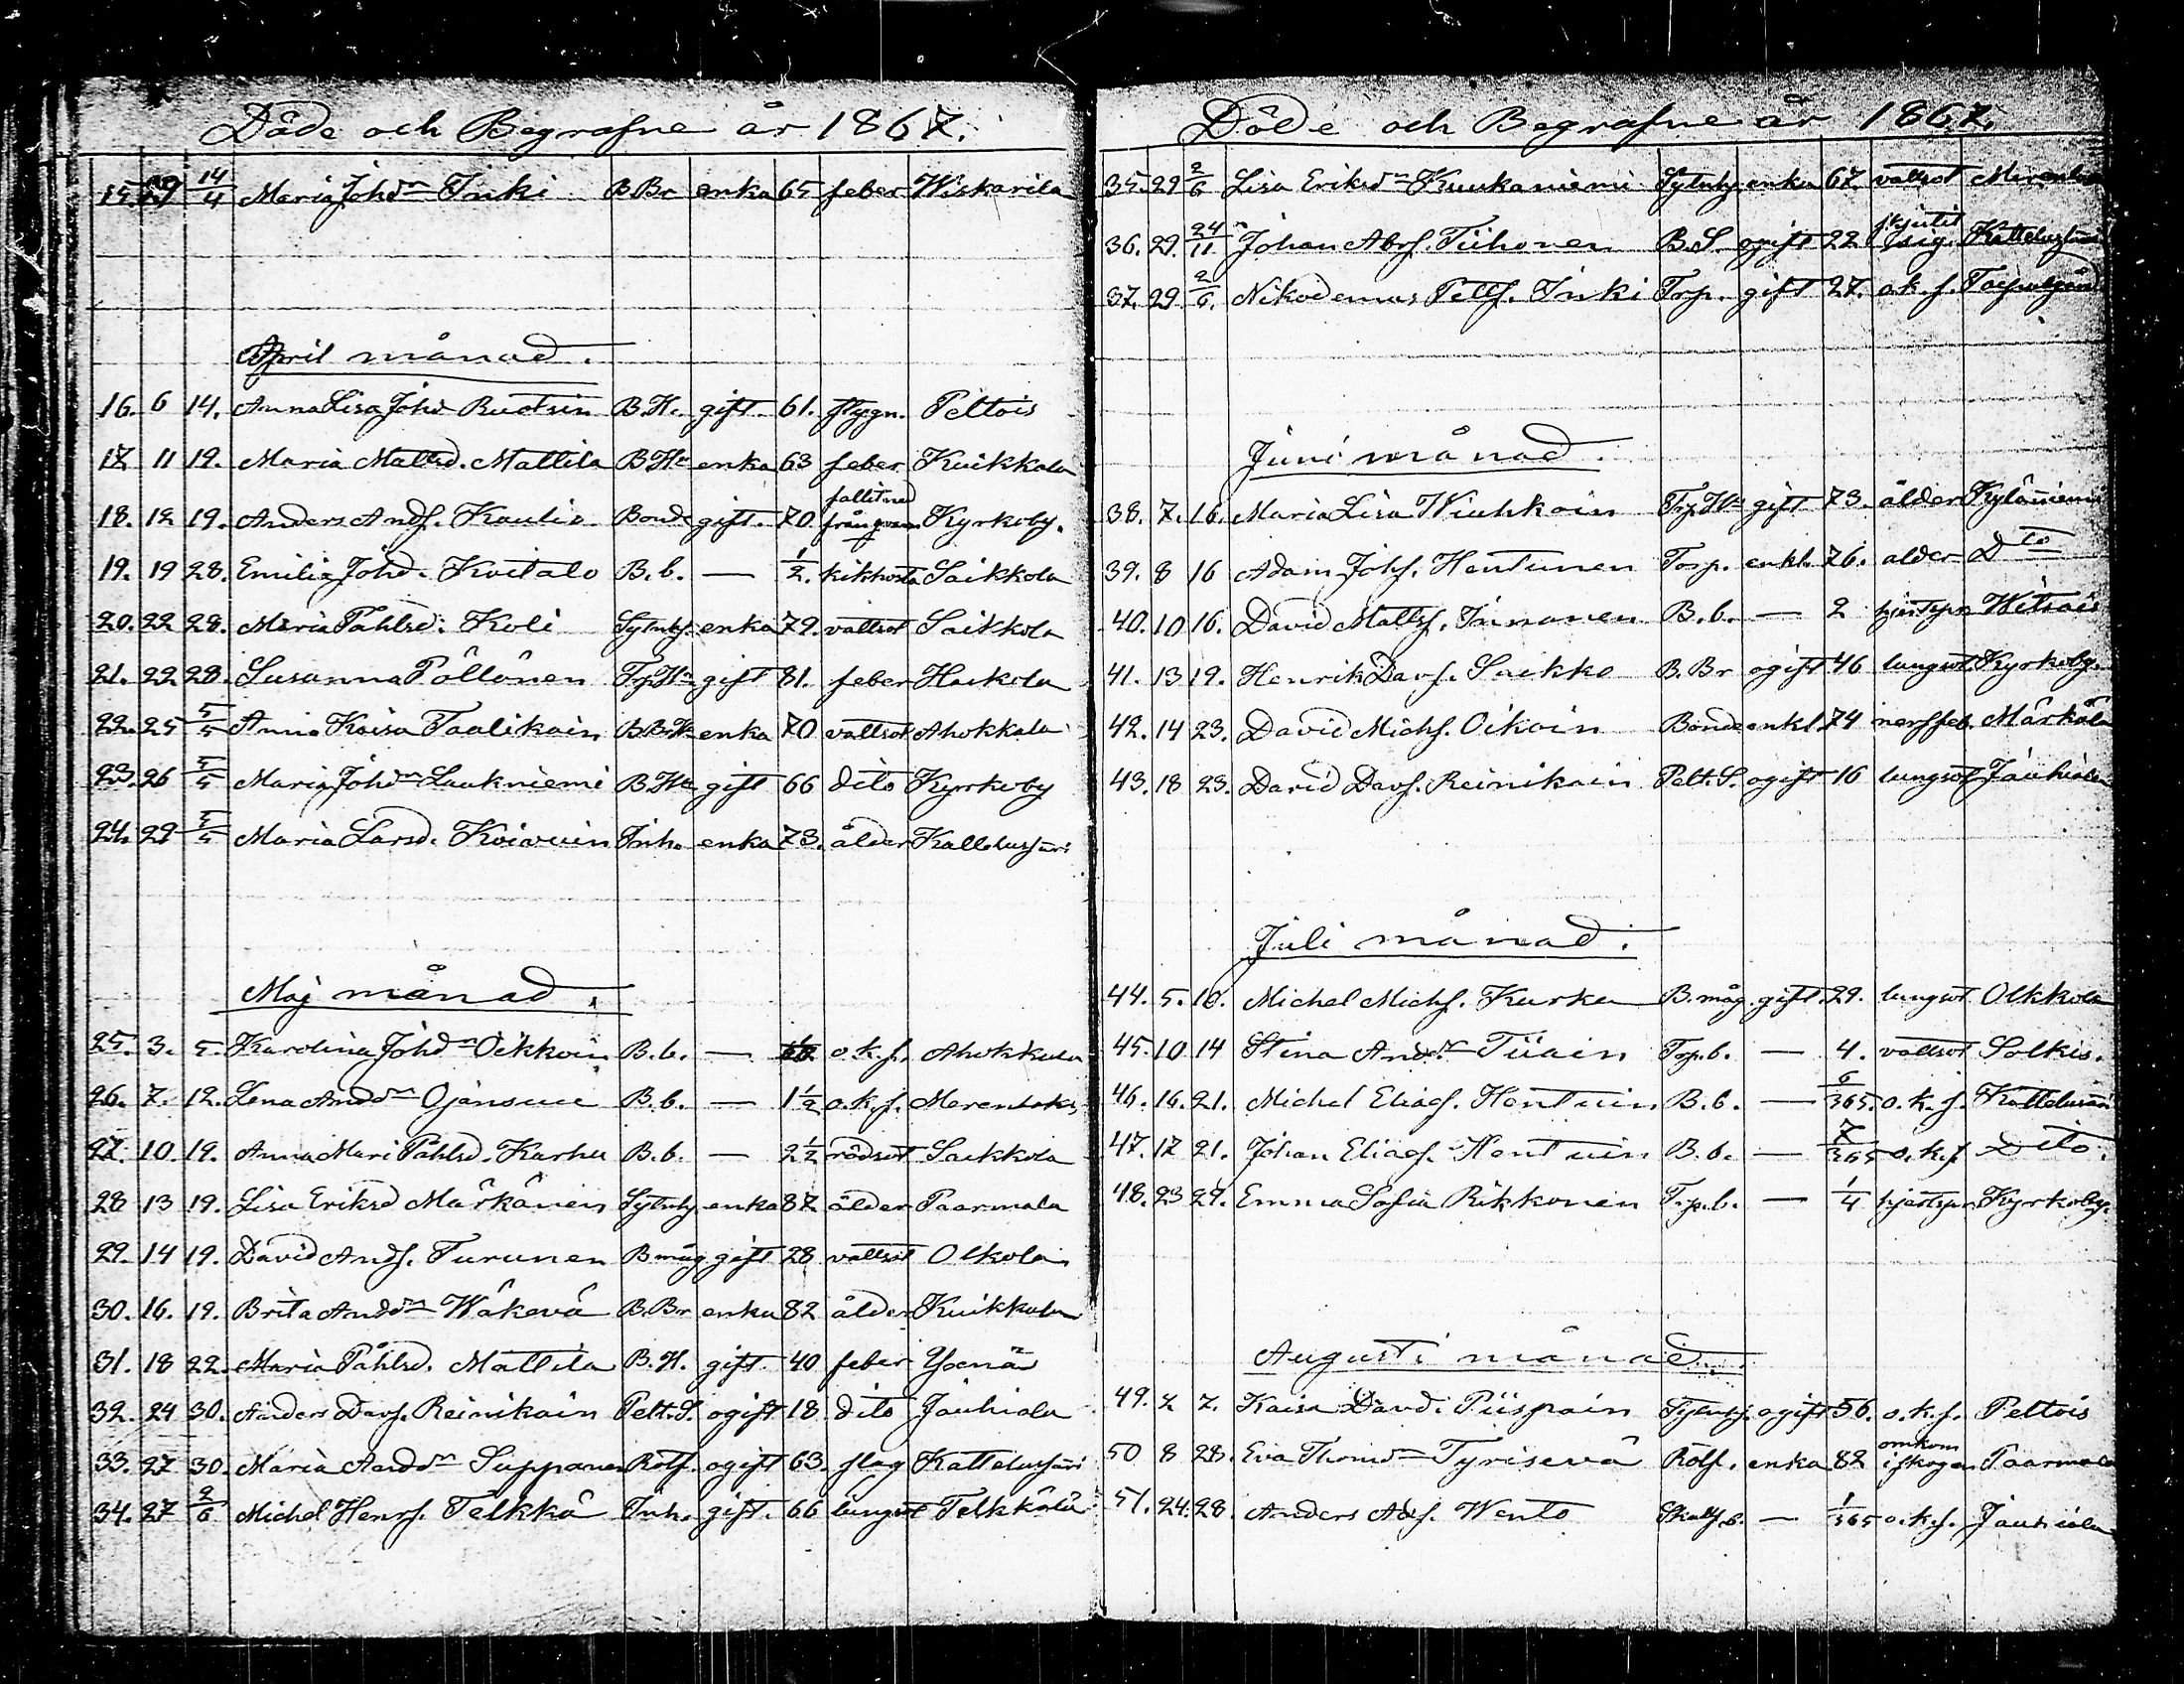 Döde och Begrafne år 1867.
15. 29 14/4 Maria Johdr Inki B.Br enka 65 feber Wiskarila
April månad.
16. 6 14. Anna Lisa Johd Ruotsin B.H. gift. 61. Peltois
17 11 19. Maria Mattsd. Mattila B.Hu enka 63 feber Kuikkala
18. 12 19. Anders Andf. Kaulio Bonde gift. 70. fallit ned från Kyrkoby.
19. 19 28. Emilia Johd. Koitalo B.b. — 1/2. kikhosta Saikkola
20. 22 28. Maria Påhlsd. Koli Sytnhj. enka 79. vattsot Saikkola
21. 22 28. Susanna Pöllönen Trp.Hu gift 81. feber Haikola
22. 25 5/5 Anna Kaisa Taalikain B.B.H. enka 70 vattsot Ahokkala
23. 26 5/5 Maria Johdr Laukniemi B.Hu gift 66 dito Kyrkoby
24. 29 5/5 Maria Larsd. Koiouin Inh. enka 73. ålder Kattelusjäri
Maj månad.
25. 3. 5. Karolina Johdr Oikkoin B.b. — o.k.s. Ahokkala
26. 7. 12. Lena Anddr Ojansuu B.b. — 1½ o.k.s. Merentaka
27. 10. 19. Anna Mari Påhlsd. Karhu B.b. — 2½ rödsot Saikkola
28 13 19. Lisa Eriksd Märkänen Sytnhj enka 87 ålder Paarmala
29. 14 19. David Andf. Turunen B.måg gift 28 vattsot Olkola
30. 16. 19. Brita Anddr Wäkevä B.Br enka 82 ålder Kuikkala
31. 18 22. Maria Påhlsd. Mattila B.H. gift. 40 feber Yxnä
32. 24 30. Anders Davf. Reinikain Pelt.S. ogift 18 dito Jäuhiala
33. 27 30. Maria Anddr Suppanen Rotf. ogift 63. slag Kattelusjäri
34. 27 2/6 Michel Henrf. Telkkä Inh. gift. 66 lungsot Telkkälä
Döde och Begrafne år 1867.
35. 29 2/6 Lisa Eriksdr Kuukaniemi Sytnhj enka 67. vattsot
36. 29. 24/11 Johan Abrf. Tiihonen B.S. ogift 22 skjutit sig. Kattelusjäri
37. 29 2/6. Nikodemus Pettf. Inki Trp. gift 27. o.k.s.
Juni månad.
38. 7. 16. Maria Lisa Wiuhkoin Trp.Hu gift 73. ålder Kyläniemi
39. 8 16 Adam Johf. Hentunen Torp. enkl. 76. ålder Dto
40. 10 16. David Mattsf. Innanen B.b. — 2 hjertspr Witsais
41. 13 19. Henrik Davf. Saikko B.Br ogift 46 lungsot. Kyrkoby.
42. 14 23. David Michf. Oikoin Bonde enkl. 74 nervfeb. Märkälä
43. 18 23. David Davf. Reinikain Pelt.S. ogift 16 lungsot Jäuhiala
Juli månad.
44. 5. 10. Michel Michf. Kurka B.måg. gift. 29. lungsot Olkkola
45. 10 14 Stina Anddr Tiiain Trp.b. — 4. vattsot Solkis.
46. 16. 21. Michel Eliasf. Hentuin B.b. — 6/365. o.k.s. Kattelusjäri
47. 17 21. Johan Eliasf. Hentuin B.b. — 7/365 o.k.s Dito.
48. 23 29. Emma Sofia Rikkonen Trp.b. — 1/4 hjertspr Kyrkoby.
Augusti månad.
49. 2 7. Kaisa Davd. Piispain Sytnhj. ogift 56. o.k.s. Peltois
50 8 28. Eva Thomdr Tyrisevä Rotf. enka 82 omkom i skogen Paarmala
51. 24. 28. Anders Adf. Wento b. — 1/365 o.k.s. Jäuhiala